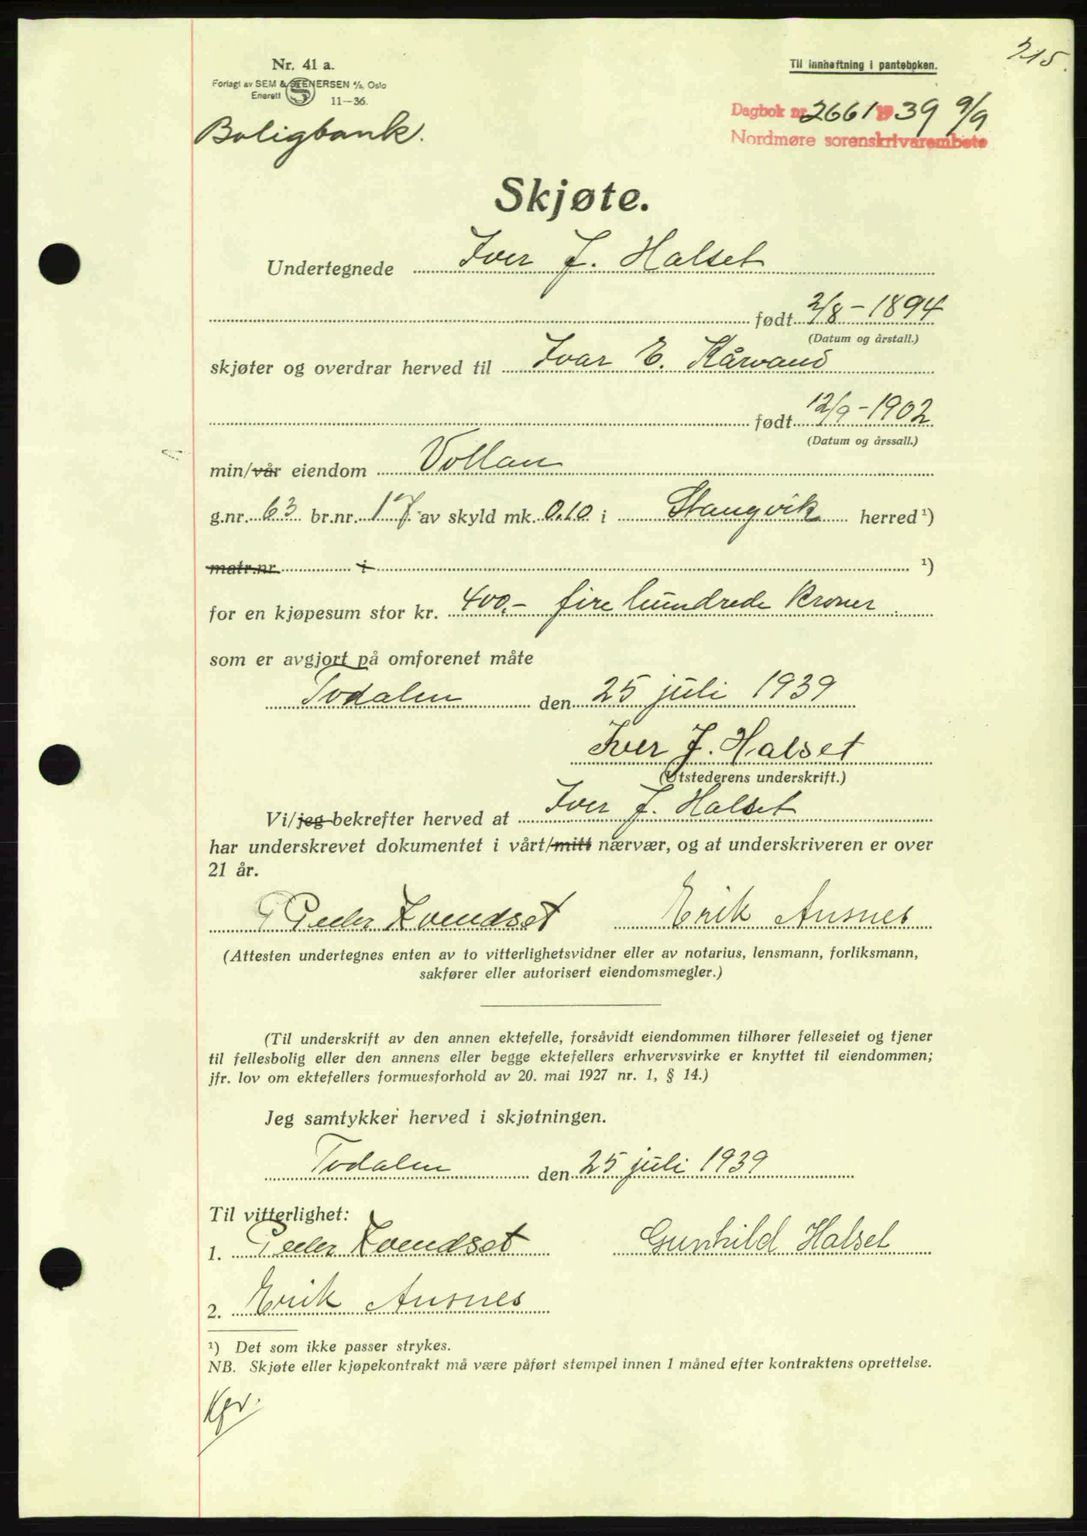 215.
Nr. 41 a.
Forlagt av SEM & STENERSEN A/S, Oslo
Enerett 11—36.
Til innheftning i panteboken.
Boligbank.
Dagbok nr. 2661 1939 9/9
Nordmøre sorenskrivarembete
Skjøte.
Undertegnede Iver J. Halset
født 2/8 - 1894
(Datum og årstall.)
skjøter og overdrar herved til Ivar E. Kårvand
født 12/9 - 1902
(Datum og årssall.)
min/vår eiendom Vollan
g.nr. 63 br.nr. 17 av skyld mk. 0.10 i Stangvik herred ¹)
matr.nr. i ¹)
for en kjøpesum stor kr. 400,- fire hundrede kroner.
som er avgjort på omforenet måte
Todalen den 25 juli 1939
Iver J. Halset
(Utstederens underskrift.)
Vi/jeg bekrefter herved at Iver J. Halset
har underskrevet dokumentet i vårt/mitt nærvær, og at underskriveren er over
21 år.
Peder Kvendset Erik Ansnes
(Attesten undertegnes enten av to vitterlighetsvidner eller av notarius, lensmann, forliksmann,
sakfører eller autorisert eiendomsmegler.)
(Til underskrift av den annen ektefelle, forsåvidt eiendommen tilhører felleseiet og tjener
til fellesbolig eller den annens eller begge ektefellers erhvervsvirke er knyttet til eiendommen;
jfr. lov om ektefellers formuesforhold av 20. mai 1927 nr. 1, § 14.)
Jeg samtykker herved i skjøtningen.
Todalen den 25 juli 1939
Til vitterlighet:
1. Peder Kvendset Gunhild Halset
2. Erik Ansnes
¹) Det som ikke passer strykes.
NB. Skjøte eller kjøpekontrakt må være påført stempel innen 1 måned efter kontraktens oprettelse.